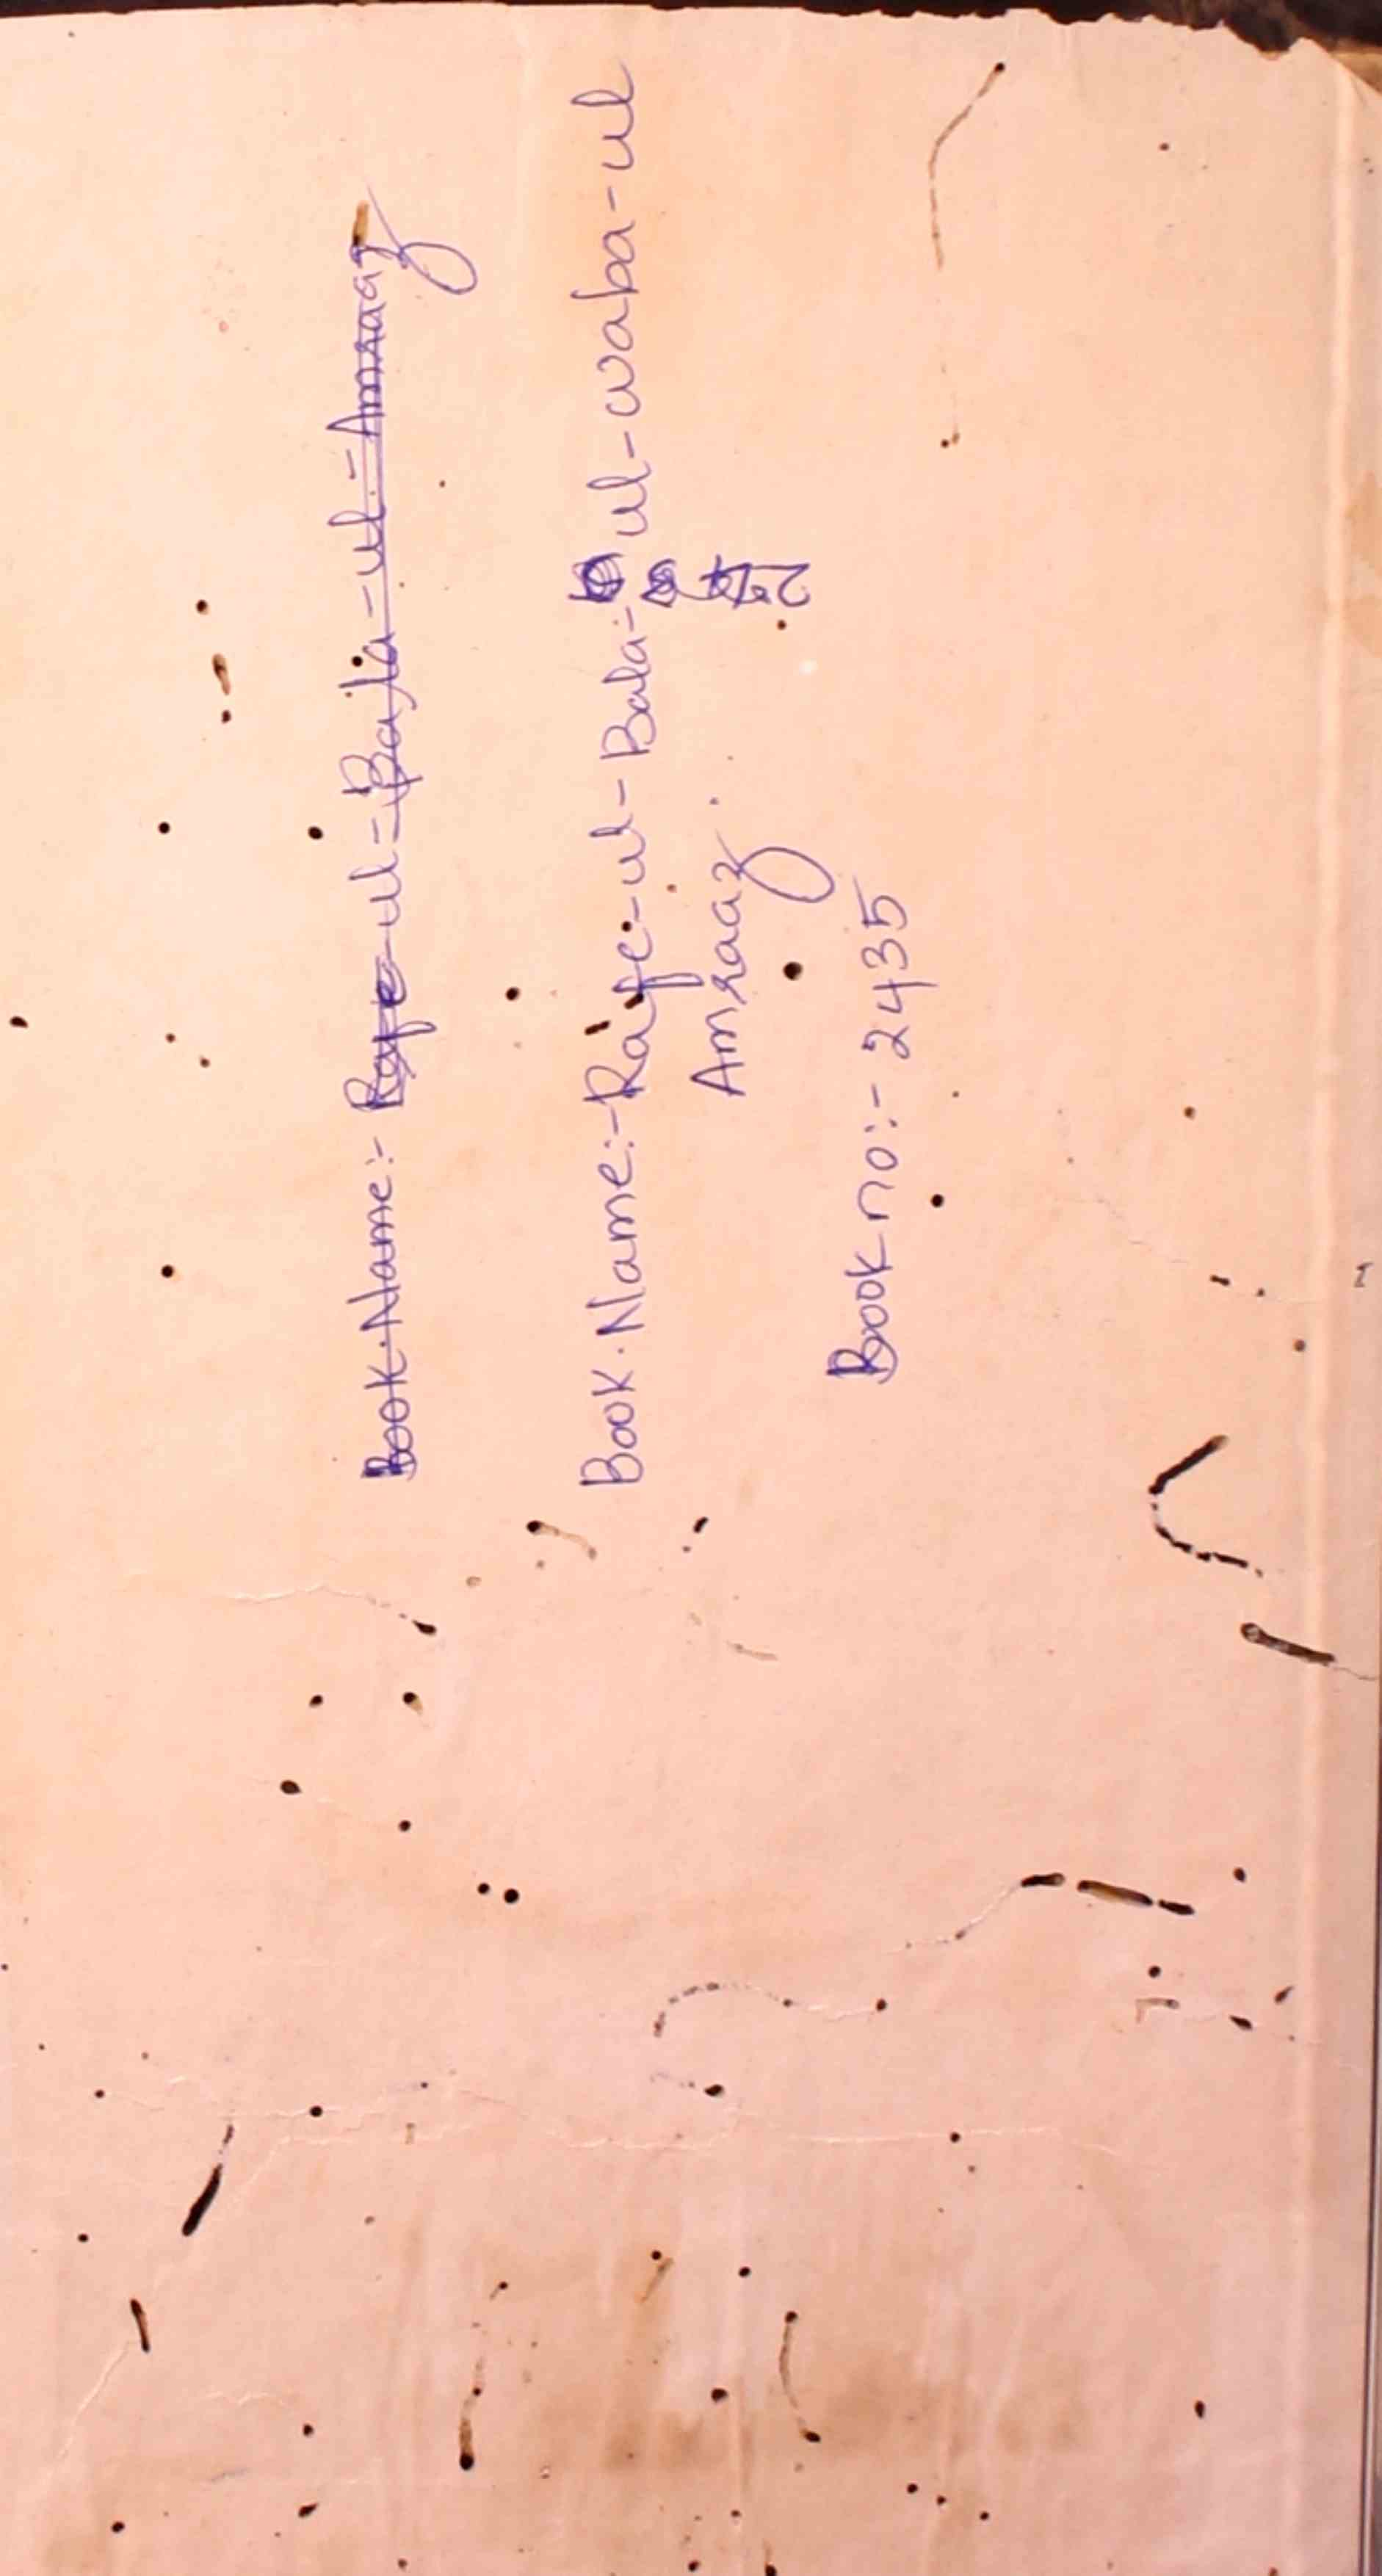 Book.Name:- Rafe-ul-Bala-ul-Amraaz
Book.Name:-Rafe-ul-Bala-ul-waba-ul
Amraaz
Book no:- 2435